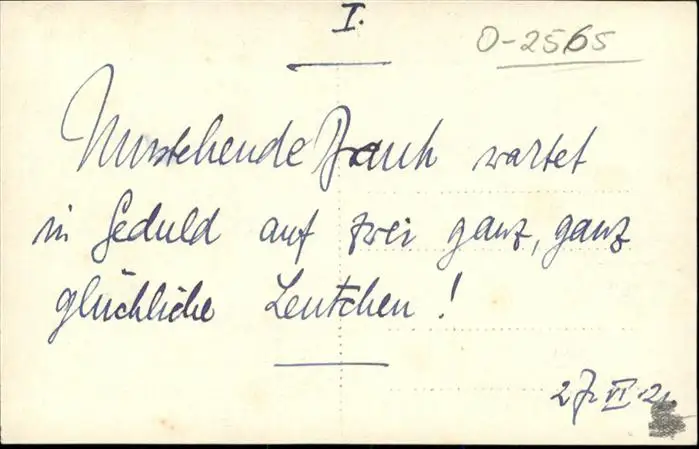 I.
0-2565
Umstehende Bank wartet
in Geduld auf zwei ganz, ganz
glückliche Leutchen!
27. VI